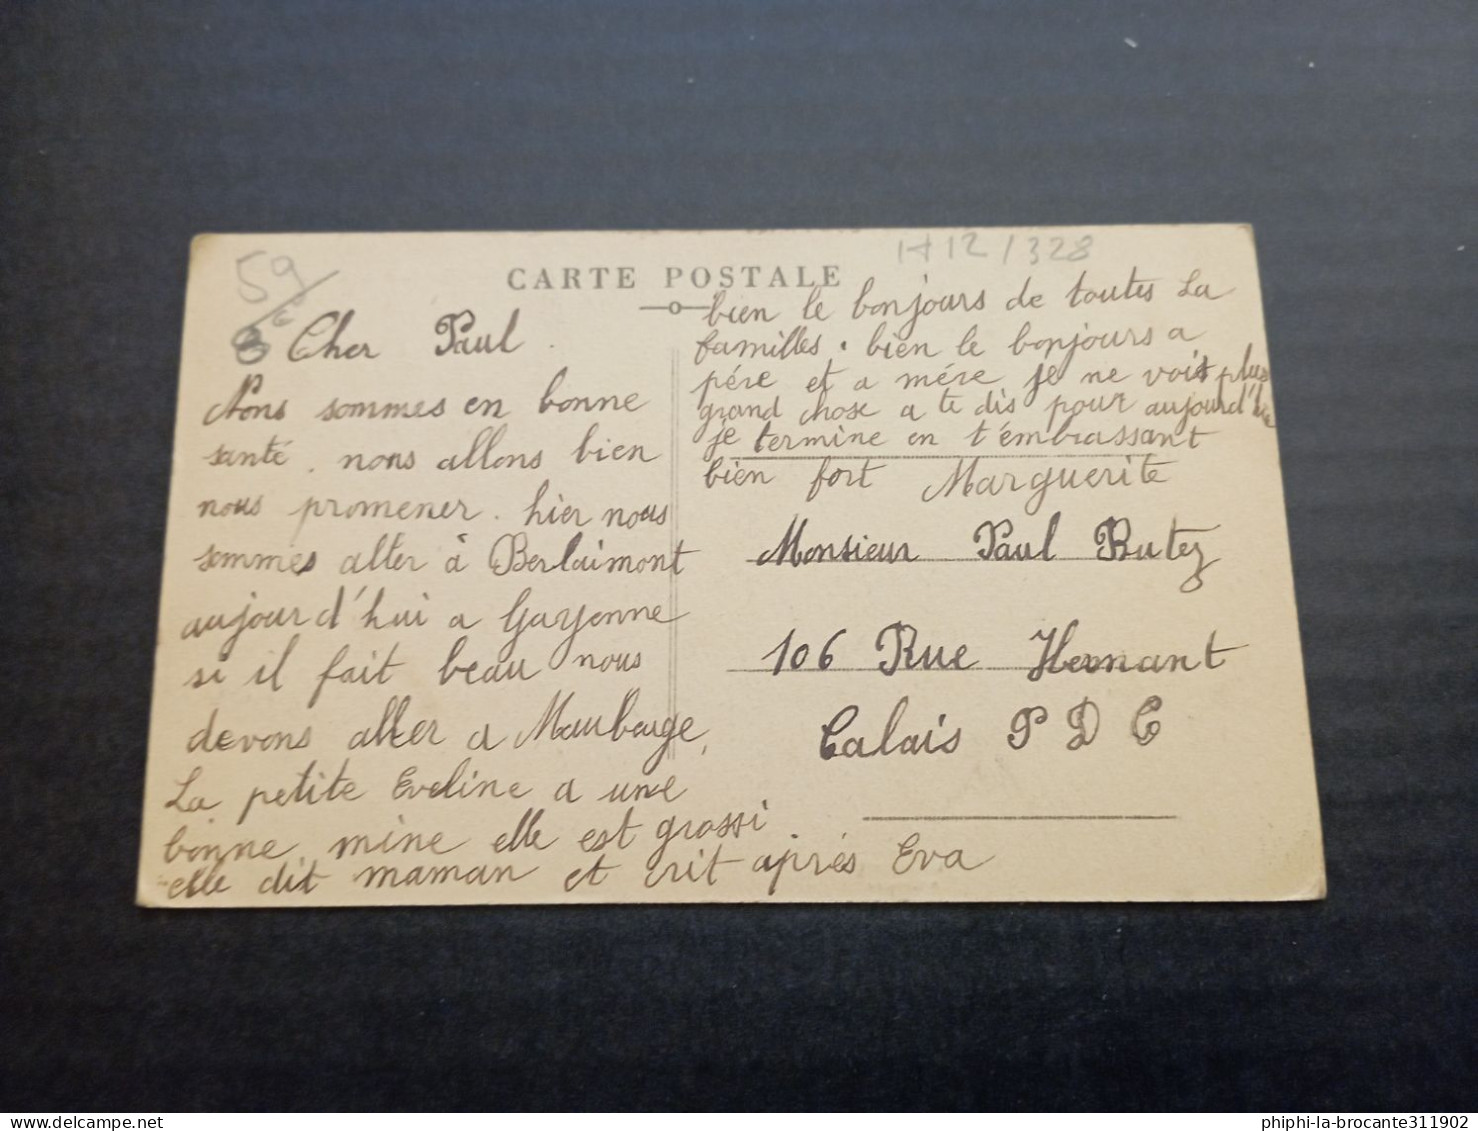 59
H12/328
CARTE POSTALE
Cher Paul.
Nous sommes en bonne
santé. nous allons bien
nous promener. hier nous
sommes aller à Berlaimont
aujour d'hui a
si il fait beau nous
devons aller a Maubauge,
La petite Eveline a une
bonne mine elle est grossi
elle dit maman et crit aprés Eva
bien le bonjours de toutes La
familles. bien le bonjours a
pére et a mére je ne vois plus
grand chose a te dis pour aujourd'hui
je termine en t'embrassant
bien fort Marguerite
Monsieur Paul Rutez
106 Rue Hernant
Calais P D C
phiphi-la-brocante311902